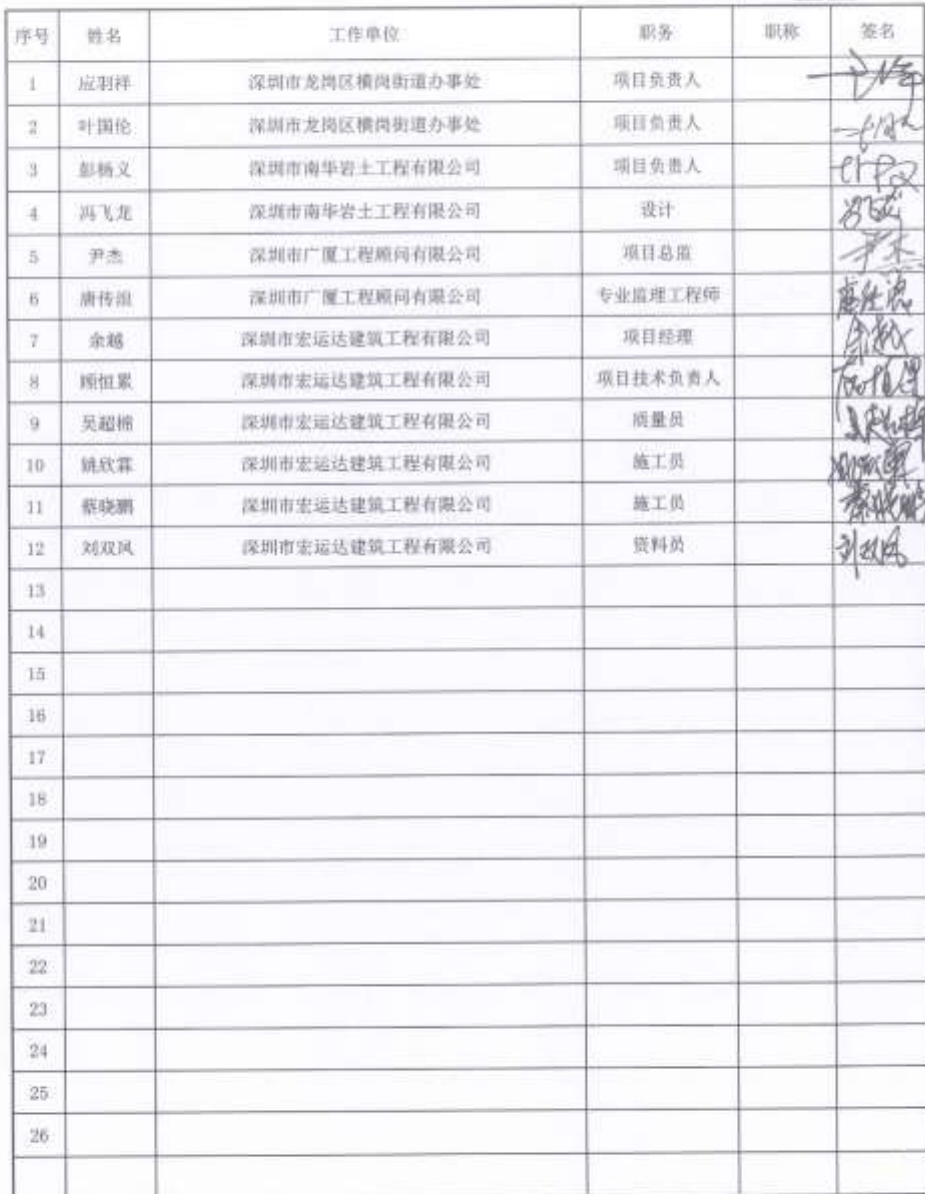 序号 姓名 工作单位 职务 职称 签名
1 应羽祥 深圳市龙岗区横岗街道办事处 项目负责人
2 叶国伦 深圳市龙岗区横岗街道办事处 项目负责人
3 彭杨义 深圳市南华岩土工程有限公司 项目负责人
4 冯飞龙 深圳市南华岩土工程有限公司 设计 冯飞龙
5 尹杰 深圳市广厦工程顾问有限公司 项目总监 尹杰
6 唐传浪 深圳市广厦工程顾问有限公司 专业监理工程师 唐传浪
7 余越 深圳市宏运达建筑工程有限公司 项目经理 余越
8 顾恒累 深圳市宏运达建筑工程有限公司 项目技术负责人 顾恒累
9 吴超棉 深圳市宏运达建筑工程有限公司 质量员 吴超棉
10 姚欣霖 深圳市宏运达建筑工程有限公司 施工员
11 蔡晓鹏 深圳市宏运达建筑工程有限公司 施工员 蔡晓鹏
12 刘双凤 深圳市宏运达建筑工程有限公司 资料员 刘双凤
13
14
15
16
17
18
19
20
21
22
23
24
25
26